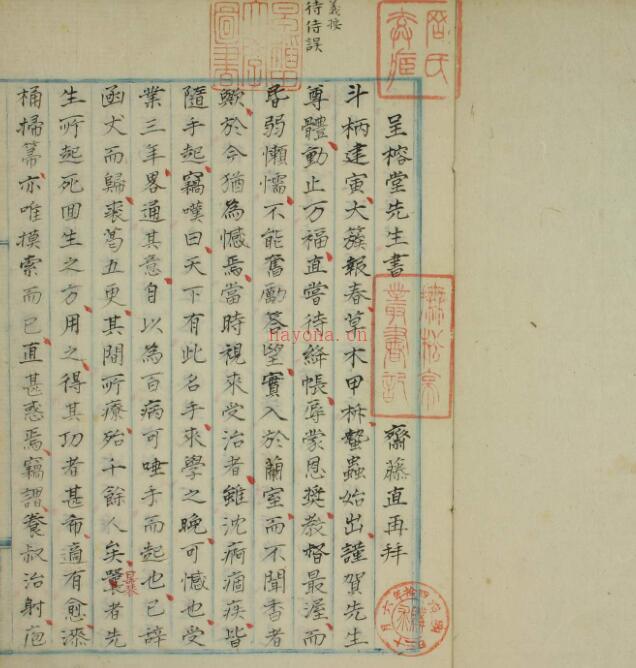 義按
待侍誤
呈榕堂先生書 齋藤直再拜
斗柄建寅大簇報春草木甲柝蟄蟲始出謹賀先生
尊體動止万福直嘗待絳帳辱蒙恩奬教督最渥而
弱懶懦不能奮勵答望實入於蘭室而不聞香者
歟於今猶為憾焉當時視來受治者雖沈痾痼疾皆
隨手起竊嘆曰天下有此名手來學之晚可憾也受
業三年畧通其意自以為百病可唾手而起也已辭
函丈而歸裘葛五更其間所療殆千餘人矣曩者先
生所起死回生之方用之得其功者甚希適有愈漆
桶掃箒亦唯摸索而已直甚惑焉竊謂養叔治射庖
hayona.cn